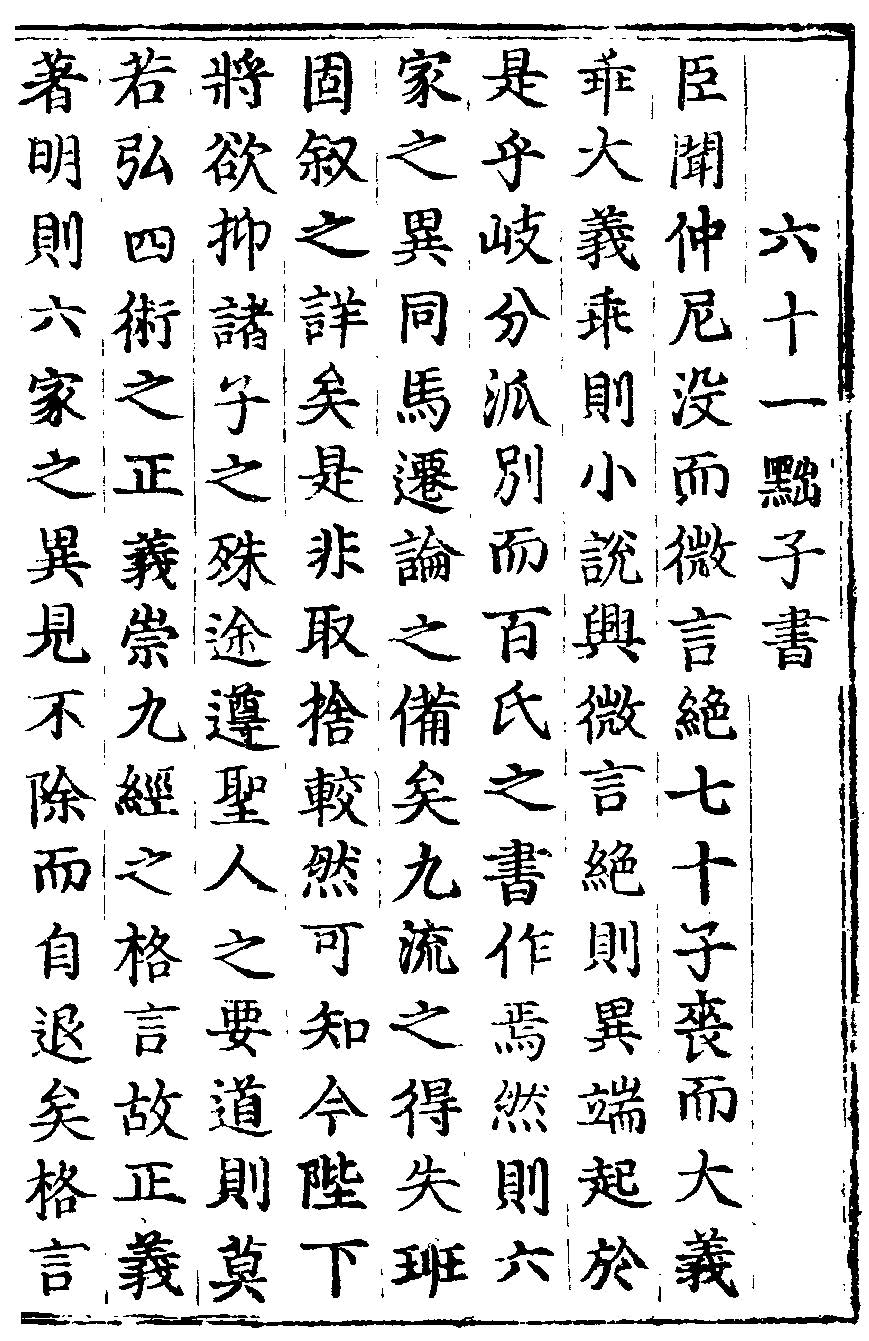 六十一黜子書
臣聞仲尼没而微言絶七十子喪而大義
乖大義乖則小說興微言絶則異端起於
是乎岐分派別而百氏之書作焉然則六
家之異同馬遷論之備矣九流之得失班
固叙之詳矣是非取捨較然可知今陛下
將欲抑諸子之殊途遵聖人之要道則莫
若弘四術之正義崇九經之格言故正義
著明則六家之異見不除而自退矣格言